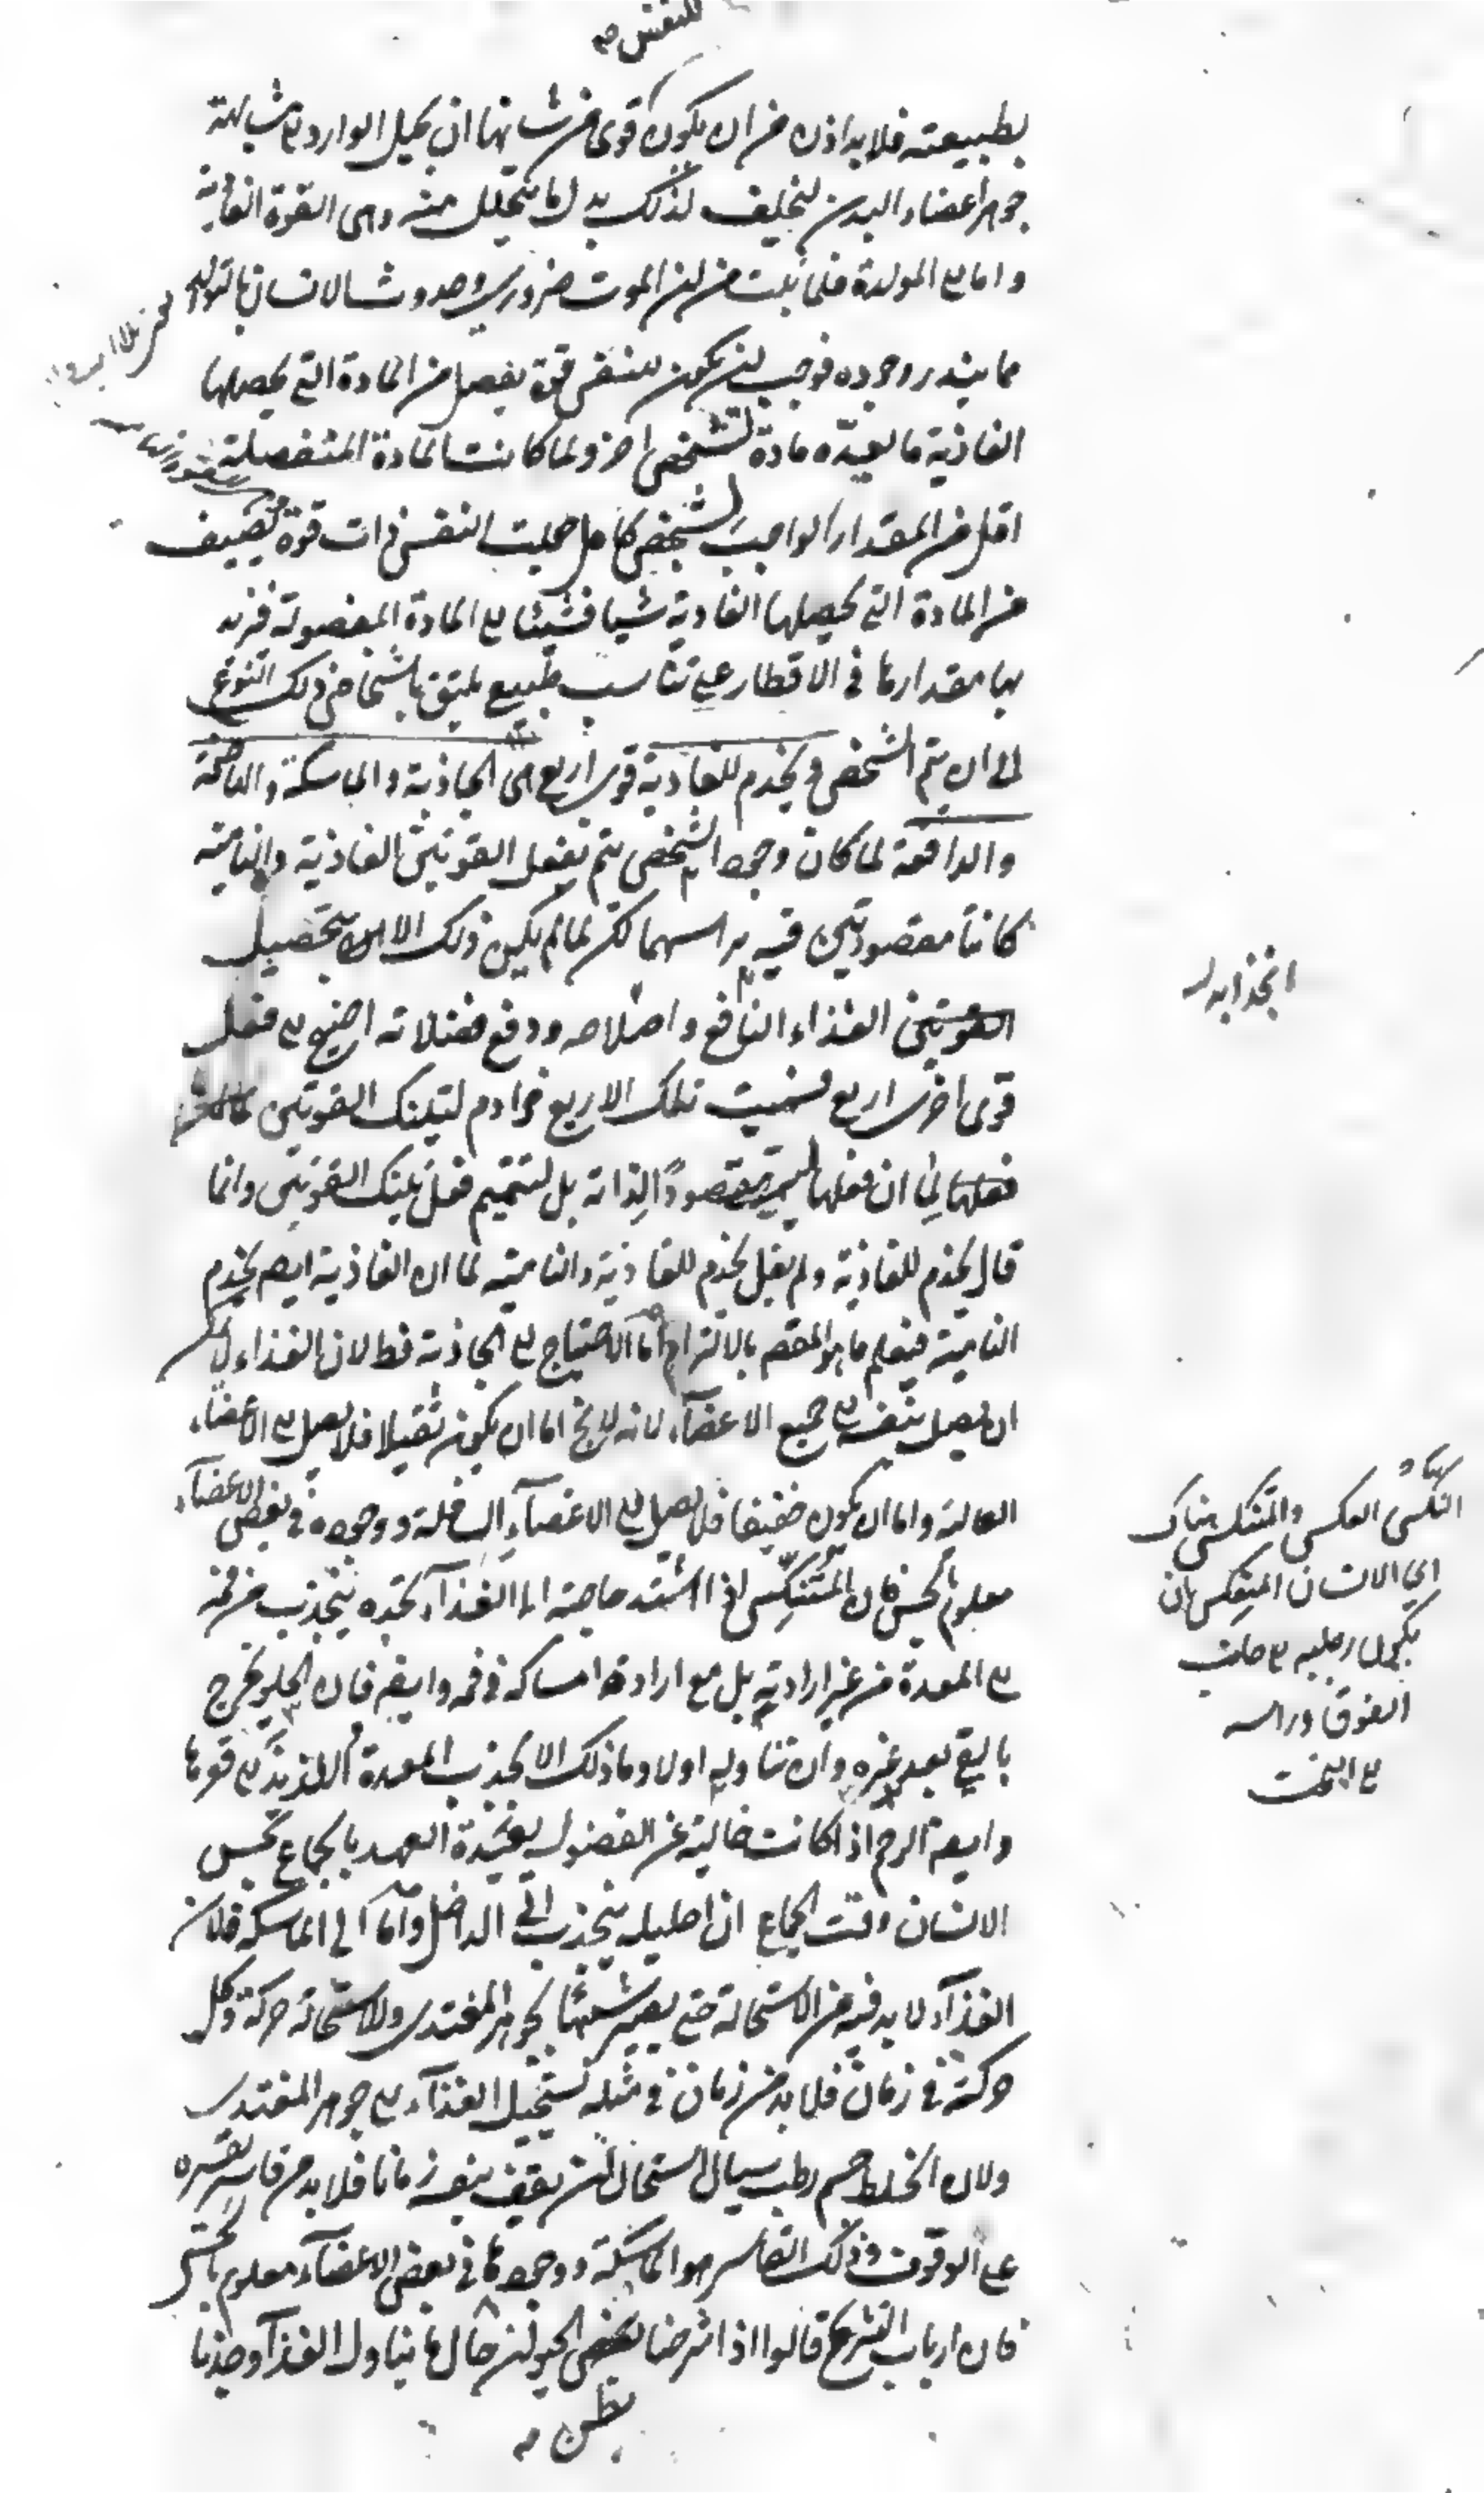 للنفس صه
بطبيعته فلا بد اذن من ان يكون قوى من شانها ان يحيل الوارد الى مشابهة
جوهر اعضاء البدن ليخلف لذلك بدل ما يتحلل منه وهى القوة الغاذية
واما الى المولدة فلما ثبت من ان الموت ضرورى وحدوث الانسان بالتولد
مما يندر وجوده فوجب ان يكون للنفس قوة يفصل من المادة التى يحصلها
الغاذية ما يعده مادة لشخص اخر ولما كانت المادة المنفصلة
اقل من المقدار الواجب لشخص كامل جعلت النفس ذات قوة تضيف
من المادة التى يحصلها الغاذية شيئا فشيئا الى المادة المفصولة فيزيد
بها مقدارها فى الاقطار على تناسب طبيعى يليق باشخاص ذلك النوع
الى ان يتم الشخص ويخدم للغاذية قوى اربع هى الجاذبة والماسكة والهاضمة
والدافعة لما كان وجود الشخص يتم بفعل القوتين الغاذية والنامية
كانتا مقصودتين فيه براسهما لكن لما لم يكن ذلك الا بتحصيل
الغذاء النافع واصلاحه ودفع فضلاته احتيج الى فعل
قوى اخرى اربع فسميت تلك الاربع خوادم لتينك القوتين
لما ان فعلها ليس مقصودًا لذاته بل لتتميم فعل تينك القوتين وانما
قال يخدم للغاذية ولم يقل يخدم للغاذية والنامية لما ان الغاذية ايضا يخدم
النامية فيعلم ما هو المقصد بالالتزام اما الاحتياج الى الجاذبة فظ لان الغذاء لا يمكن
ان يصل بنفسه الى جميع الاعضآء لانه لا يخ اما ان يكون ثقيلا فلا يصل الى الاعضاء
العالية واما ان يكون خفيفا فلا يصل الى الاعضآء السافلة ووجوده فى بعض الاعضآء
معلوم بالحس فان المتنكس اذا اشتد حاجته الى الغذآء تجده ينجذب من فمه
الى المعدة من غير ارادته بل مع ارادة امساكه فى فمه وايضا فان الحلو يخرج
بالقى بعد غيره وان تناوله اولا وما ذلك الا لجذب المعدة اللذيذ الى قعرها
وايضا الرحم اذا كانت خالية عن الفضول بعيدة العهد بالجماع يحس
الانسان وقت الجماع ان احليله ينجذب الى الداخل واما الى الماسكة فلان
الغذآء لا بد فيه من الاستحالة حتى يصير شبيها بجوهر المغتذى والاستحالة حركة وكل
حركة فى زمان فلا بد من زمان فى مثله يستحيل الغذآء الى جوهر المغتذى
ولان الخلط جسم رطب سيال استحال ان يقف بنفسه زمانا فلا بد من قاسر يقسره
على الوقوف وذلك القاسر هو الماسكة ووجودها فى بعض الاعضآء معلوم بالحس
فان ارباب التشريح قالوا اذا شرحنا الحيوان حال ما يتناول الغذآء وجدنا
بطن صه
انجذابه
النكس العكس والمتنكس هناك
اى الانسان المنعكس بان
يكون رجليه الى جانب
الفوق وراسه
الى التحت